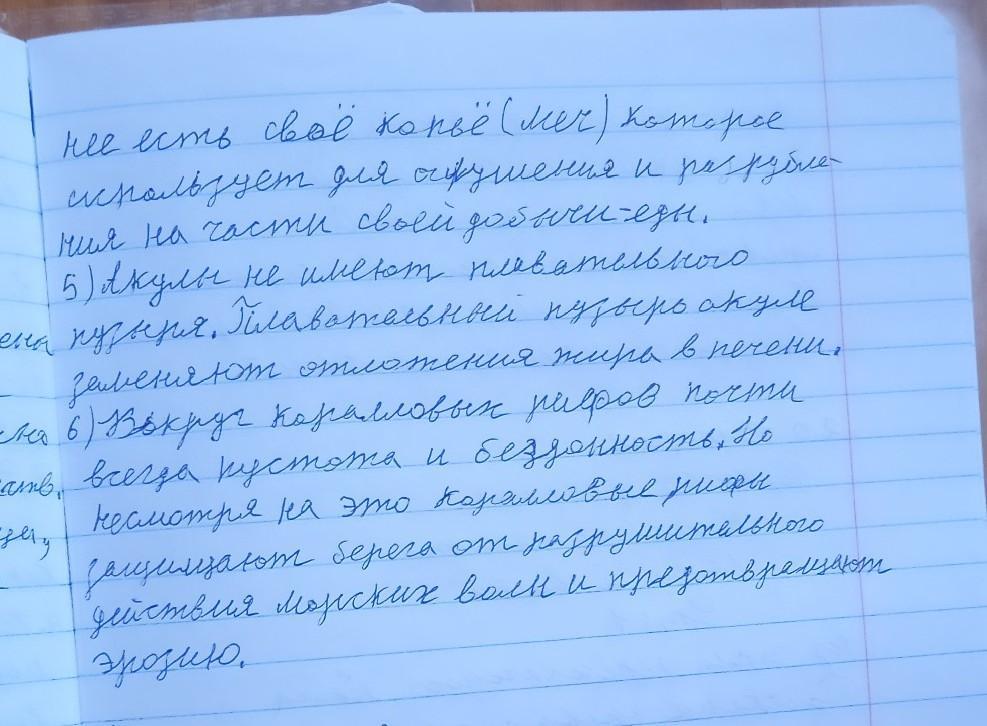 нее есть своё копьё (меч) которое
использует для оглушения и разрубле-
ния на части своей добычи-еды.
5) Акулы не имеют плавательного
пузыря. Плавательный пузырь акуле
заменяют отложения жира в печени.
6) Вокруг коралловых рифов почти
всегда пустота и бездонность. Но
несмотря на это коралловые рифы
защищают берега от разрушительного
действия морских волн и предотвращают
эрозию.